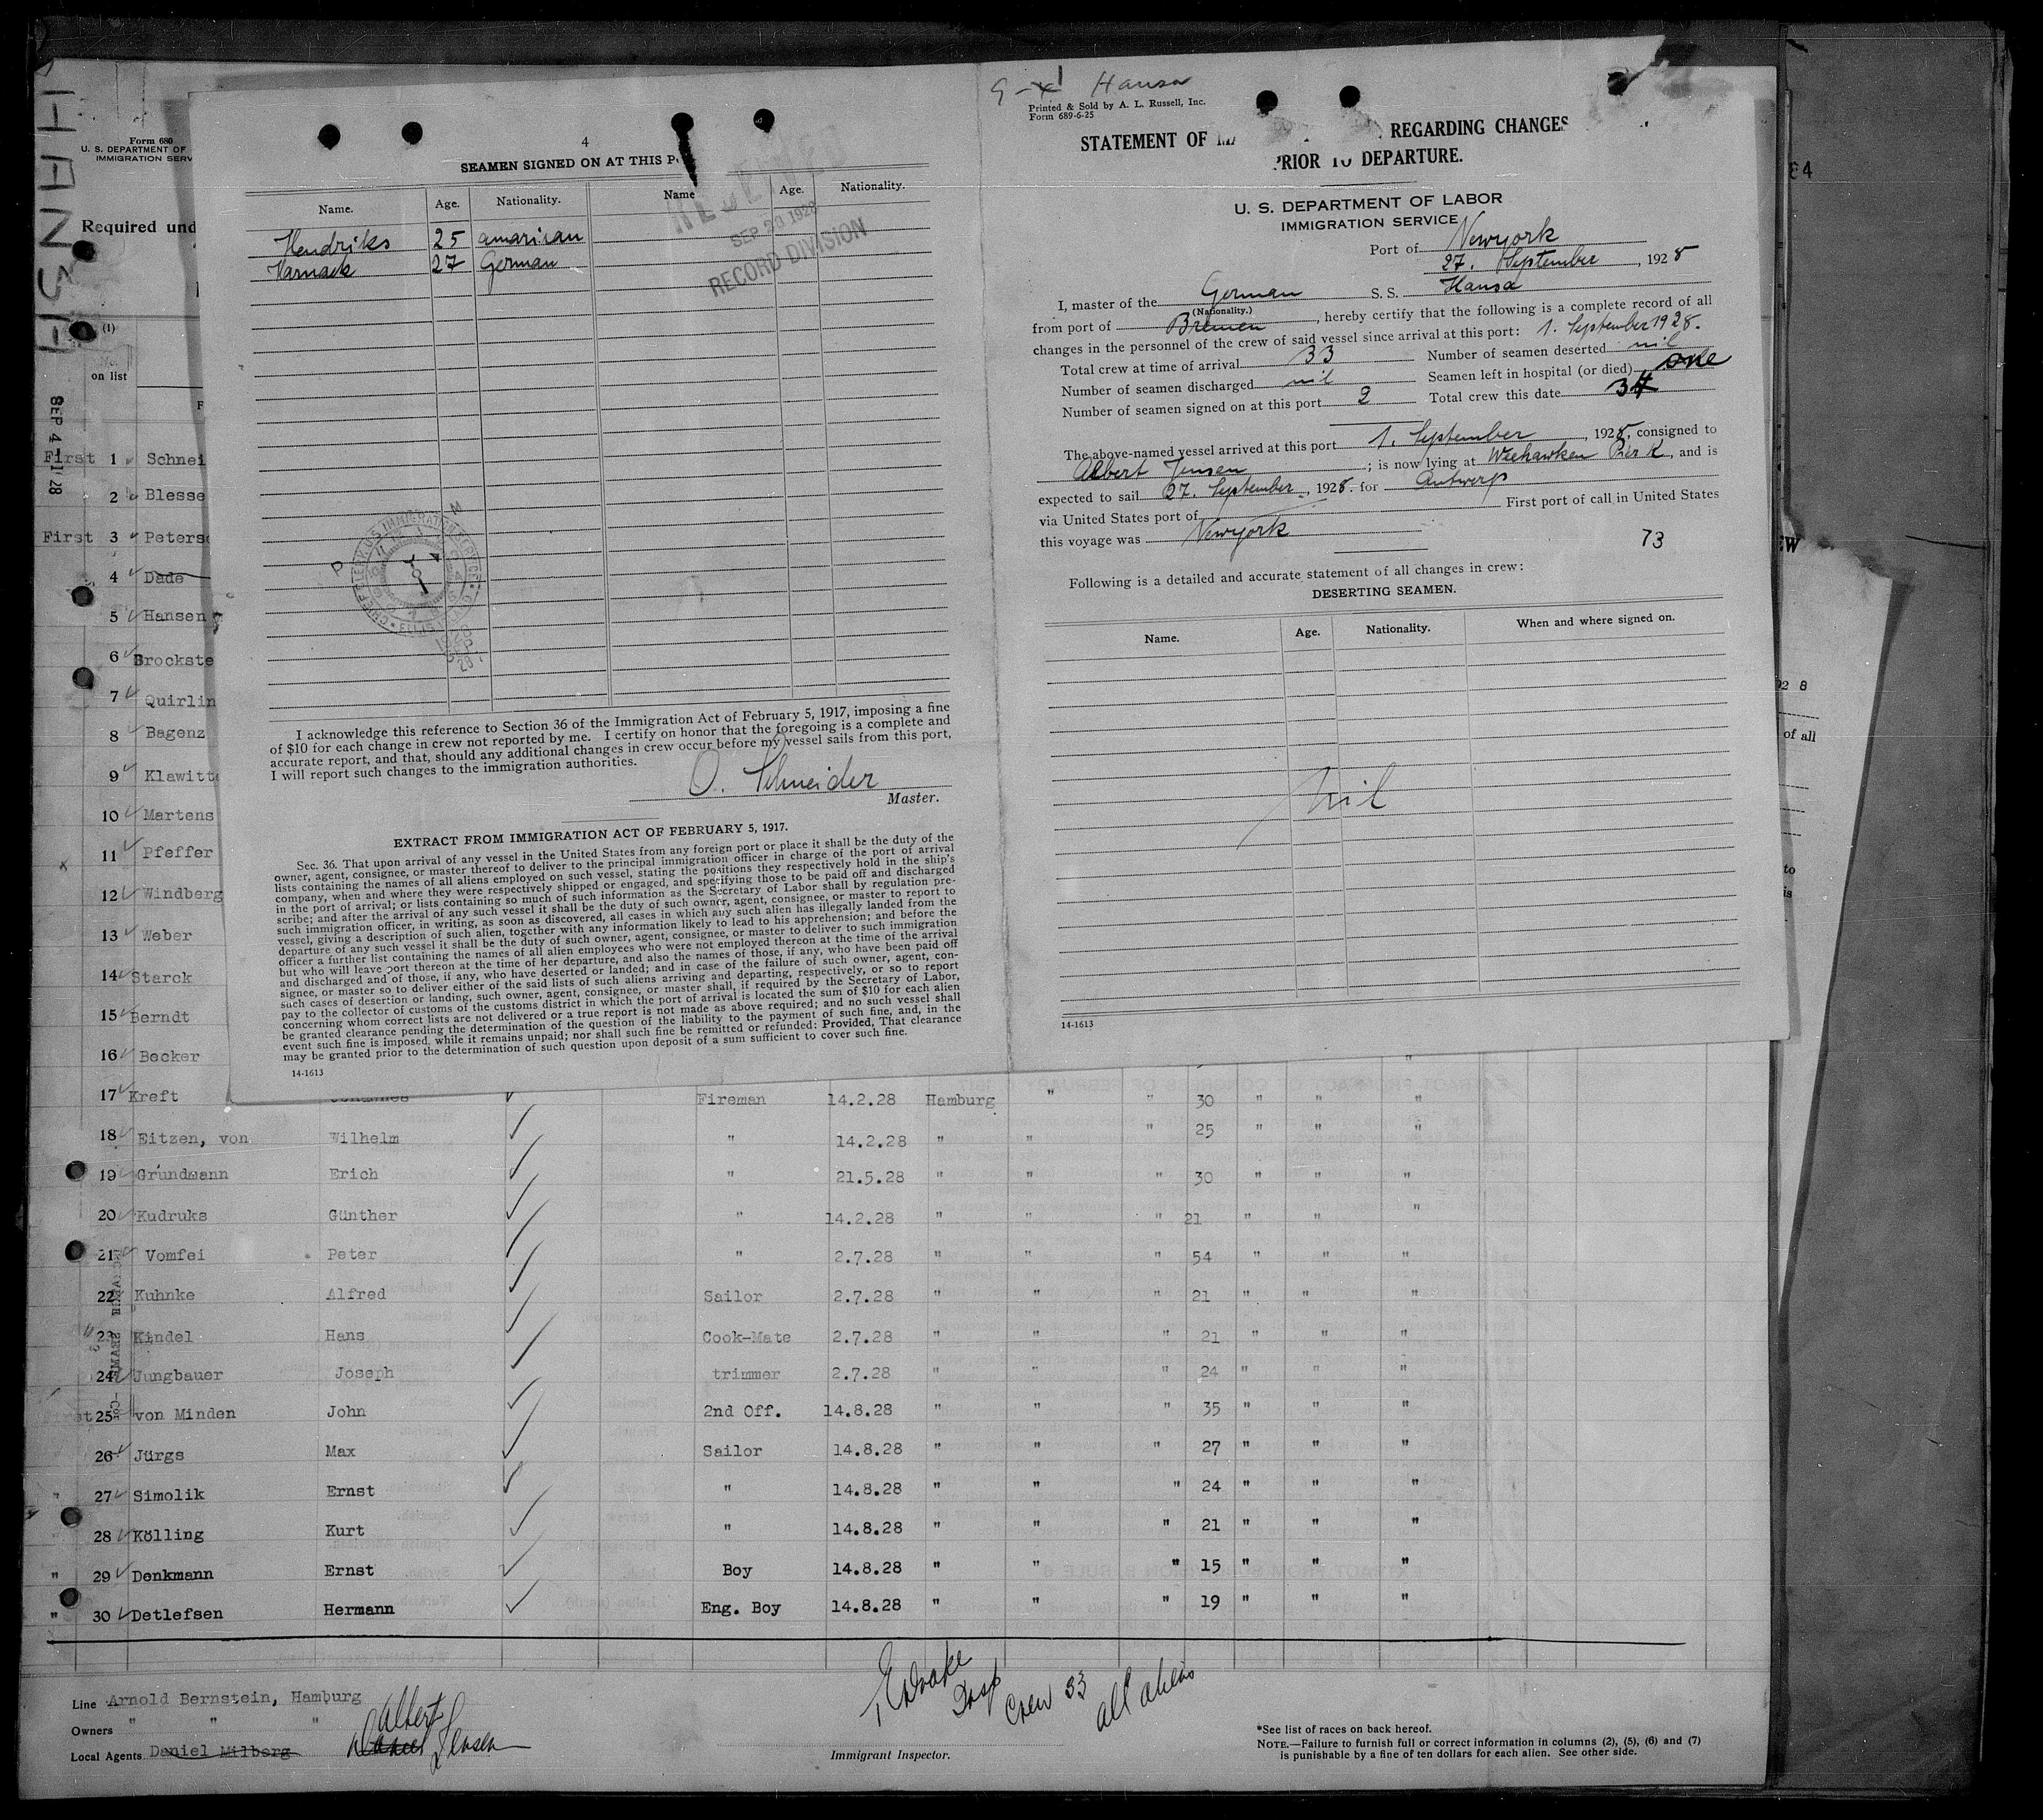 HANSE
SEP 4 1928
Form 680
U. S. DEPARTMENT OF
IMMIGRATION SERV
Required und
(1)
No.
on list
F
First 1 Schnei
2 Blesse
First 3 Peterse
4 Dade
5 Hansen
6 Brockste
7 Quirlin
8 Bagenz
9 Klawitte
10 Martens
11 Pfeffer
12 Windberg
13 Weber
14 Starck
15 Berndt
16 Becker
4
SEAMEN SIGNED ON AT THIS P
Name. Age. Nationality. Name Age. Nationality.
Hendriks 25 amarican
Harnack 27 German
SEP 28 1928
RECORD DIVISION
I acknowledge this reference to Section 36 of the Immigration Act of February 5, 1917, imposing a fine
of $10 for each change in crew not reported by me. I certify on honor that the foregoing is a complete and
accurate report, and that, should any additional changes in crew occur before my vessel sails from this port,
I will report such changes to the immigration authorities.
O. Schneider
Master.
EXTRACT FROM IMMIGRATION ACT OF FEBRUARY 5, 1917.
Sec. 36. That upon arrival of any vessel in the United States from any foreign port or place it shall be the duty of the
owner, agent, consignee, or master thereof to deliver to the principal immigration officer in charge of the port of arrival
lists containing the names of all aliens employed on such vessel, stating the positions they respectively hold in the ship's
company, when and where they were respectively shipped or engaged, and specifying those to be paid off and discharged
in the port of arrival; or lists containing so much of such information as the Secretary of Labor shall by regulation pre-
scribe; and after the arrival of any such vessel it shall be the duty of such owner, agent, consignee, or master to report to
such immigration officer, in writing, as soon as discovered, all cases in which any such alien has illegally landed from the
vessel, giving a description of such alien, together with any information likely to lead to his apprehension; and before the
departure of any such vessel it shall be the duty of such owner, agent, consignee, or master to deliver to such immigration
officer a further list containing the names of all alien employees who were not employed thereon at the time of the arrival
but who will leave port thereon at the time of her departure, and also the names of those, if any, who have been paid off
and discharged and of those, if any, who have deserted or landed; and in case of the failure of such owner, agent, con-
signee, or master so to deliver either of the said lists of such aliens arriving and departing, respectively, or so to report
such cases of desertion or landing, such owner, agent, consignee, or master shall, if required by the Secretary of Labor,
pay to the collector of customs of the customs district in which the port of arrival is located the sum of $10 for each alien
concerning whom correct lists are not delivered or a true report is not made as above required; and no such vessel shall
be granted clearance pending the determination of the question of the liability to the payment of such fine, and, in the
event such fine is imposed, while it remains unpaid; nor shall such fine be remitted or refunded: Provided, That clearance
may be granted prior to the determination of such question upon deposit of a sum sufficient to cover such fine.
14-1613
9-x Hansa
Printed & Sold by A. L. Russell, Inc.
Form 689-6-25
STATEMENT OF MA REGARDING CHANGES
PRIOR TO DEPARTURE.
U. S. DEPARTMENT OF LABOR
IMMIGRATION SERVICE
Port of Newyork
27. September, 1928
I, master of the German S. S. Hansa
(Nationality.)
from port of Bremen, hereby certify that the following is a complete record of all
changes in the personnel of the crew of said vessel since arrival at this port: 1. September 1928.
Total crew at time of arrival 33 Number of seamen deserted nil
Number of seamen discharged nil Seamen left in hospital (or died) one
Number of seamen signed on at this port 2 Total crew this date 34
The above-named vessel arrived at this port 1. September, 1928, consigned to
Albert Jensen; is now lying at Weehawken Pier K, and is
expected to sail 27. September, 1928. for Antwerp
via United States port of First port of call in United States
this voyage was Newyork
73
Following is a detailed and accurate statement of all changes in crew:
DESERTING SEAMEN.
Name. Age. Nationality. When and where signed on.
Nil
14-1613
84
EW
92 8
of all
to
is
17 Kreft Johannes Fireman 14.2.28 Hamburg " " 30 " " "
18 Eitzen, von Wilhelm " 14.2.28 " " " 25 " " "
19 Grundmann Erich " 21.5.28 " " " 30 " " "
20 Kudruks Günther " 14.2.28 " " " 21 " " "
21 Vomfei Peter " 2.7.28 " " " 54 " " "
22 Kuhnke Alfred Sailor 2.7.28 " " " 21 " " "
23 Kindel Hans Cook-Mate 2.7.28 " " " 21 " " "
24 Jungbauer Joseph trimmer 2.7.28 " " " 24 " " "
First 25 von Minden John 2nd Off. 14.8.28 " " " 35 " " "
26 Jürgs Max Sailor 14.8.28 " " " 27 " " "
" 27 Simolik Ernst " 14.8.28 " " " 24 " " "
28 Kölling Kurt " 14.8.28 " " " 21 " " "
" 29 Denkmann Ernst Boy 14.8.28 " " " 15 " " "
" 30 Detlefsen Hermann Eng. Boy 14.8.28 " " " 19 " " "
Line Arnold Bernstein, Hamburg
Owners " " "
Local Agents Daniel Milberg
Albert Jensen
Drake
Insp
Crew 33
all aliens
Immigrant Inspector.
*See list of races on back hereof.
NOTE.—Failure to furnish full or correct information in columns (2), (5), (6) and (7)
is punishable by a fine of ten dollars for each alien. See other side.